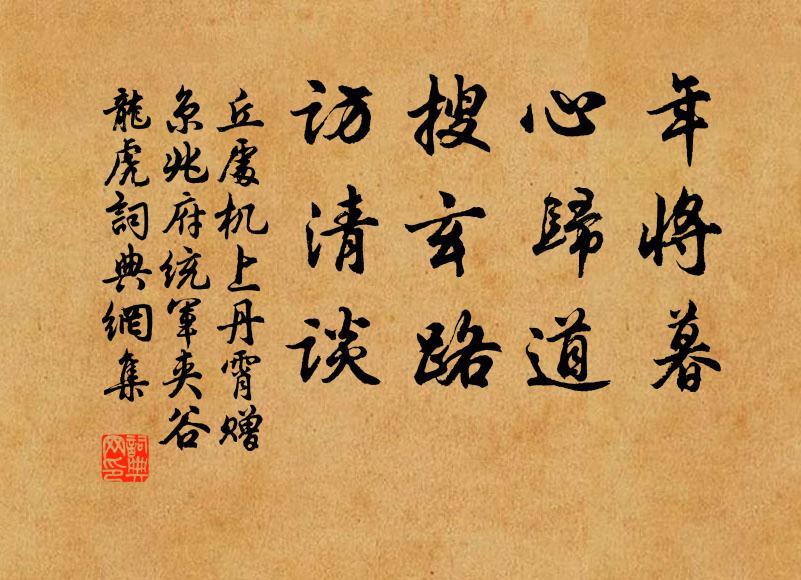 年将暮
心歸道
搜玄路
访清談
丘處机上丹霄赠
京兆府統軍夾谷
龍虎詞典網集
詞典網印